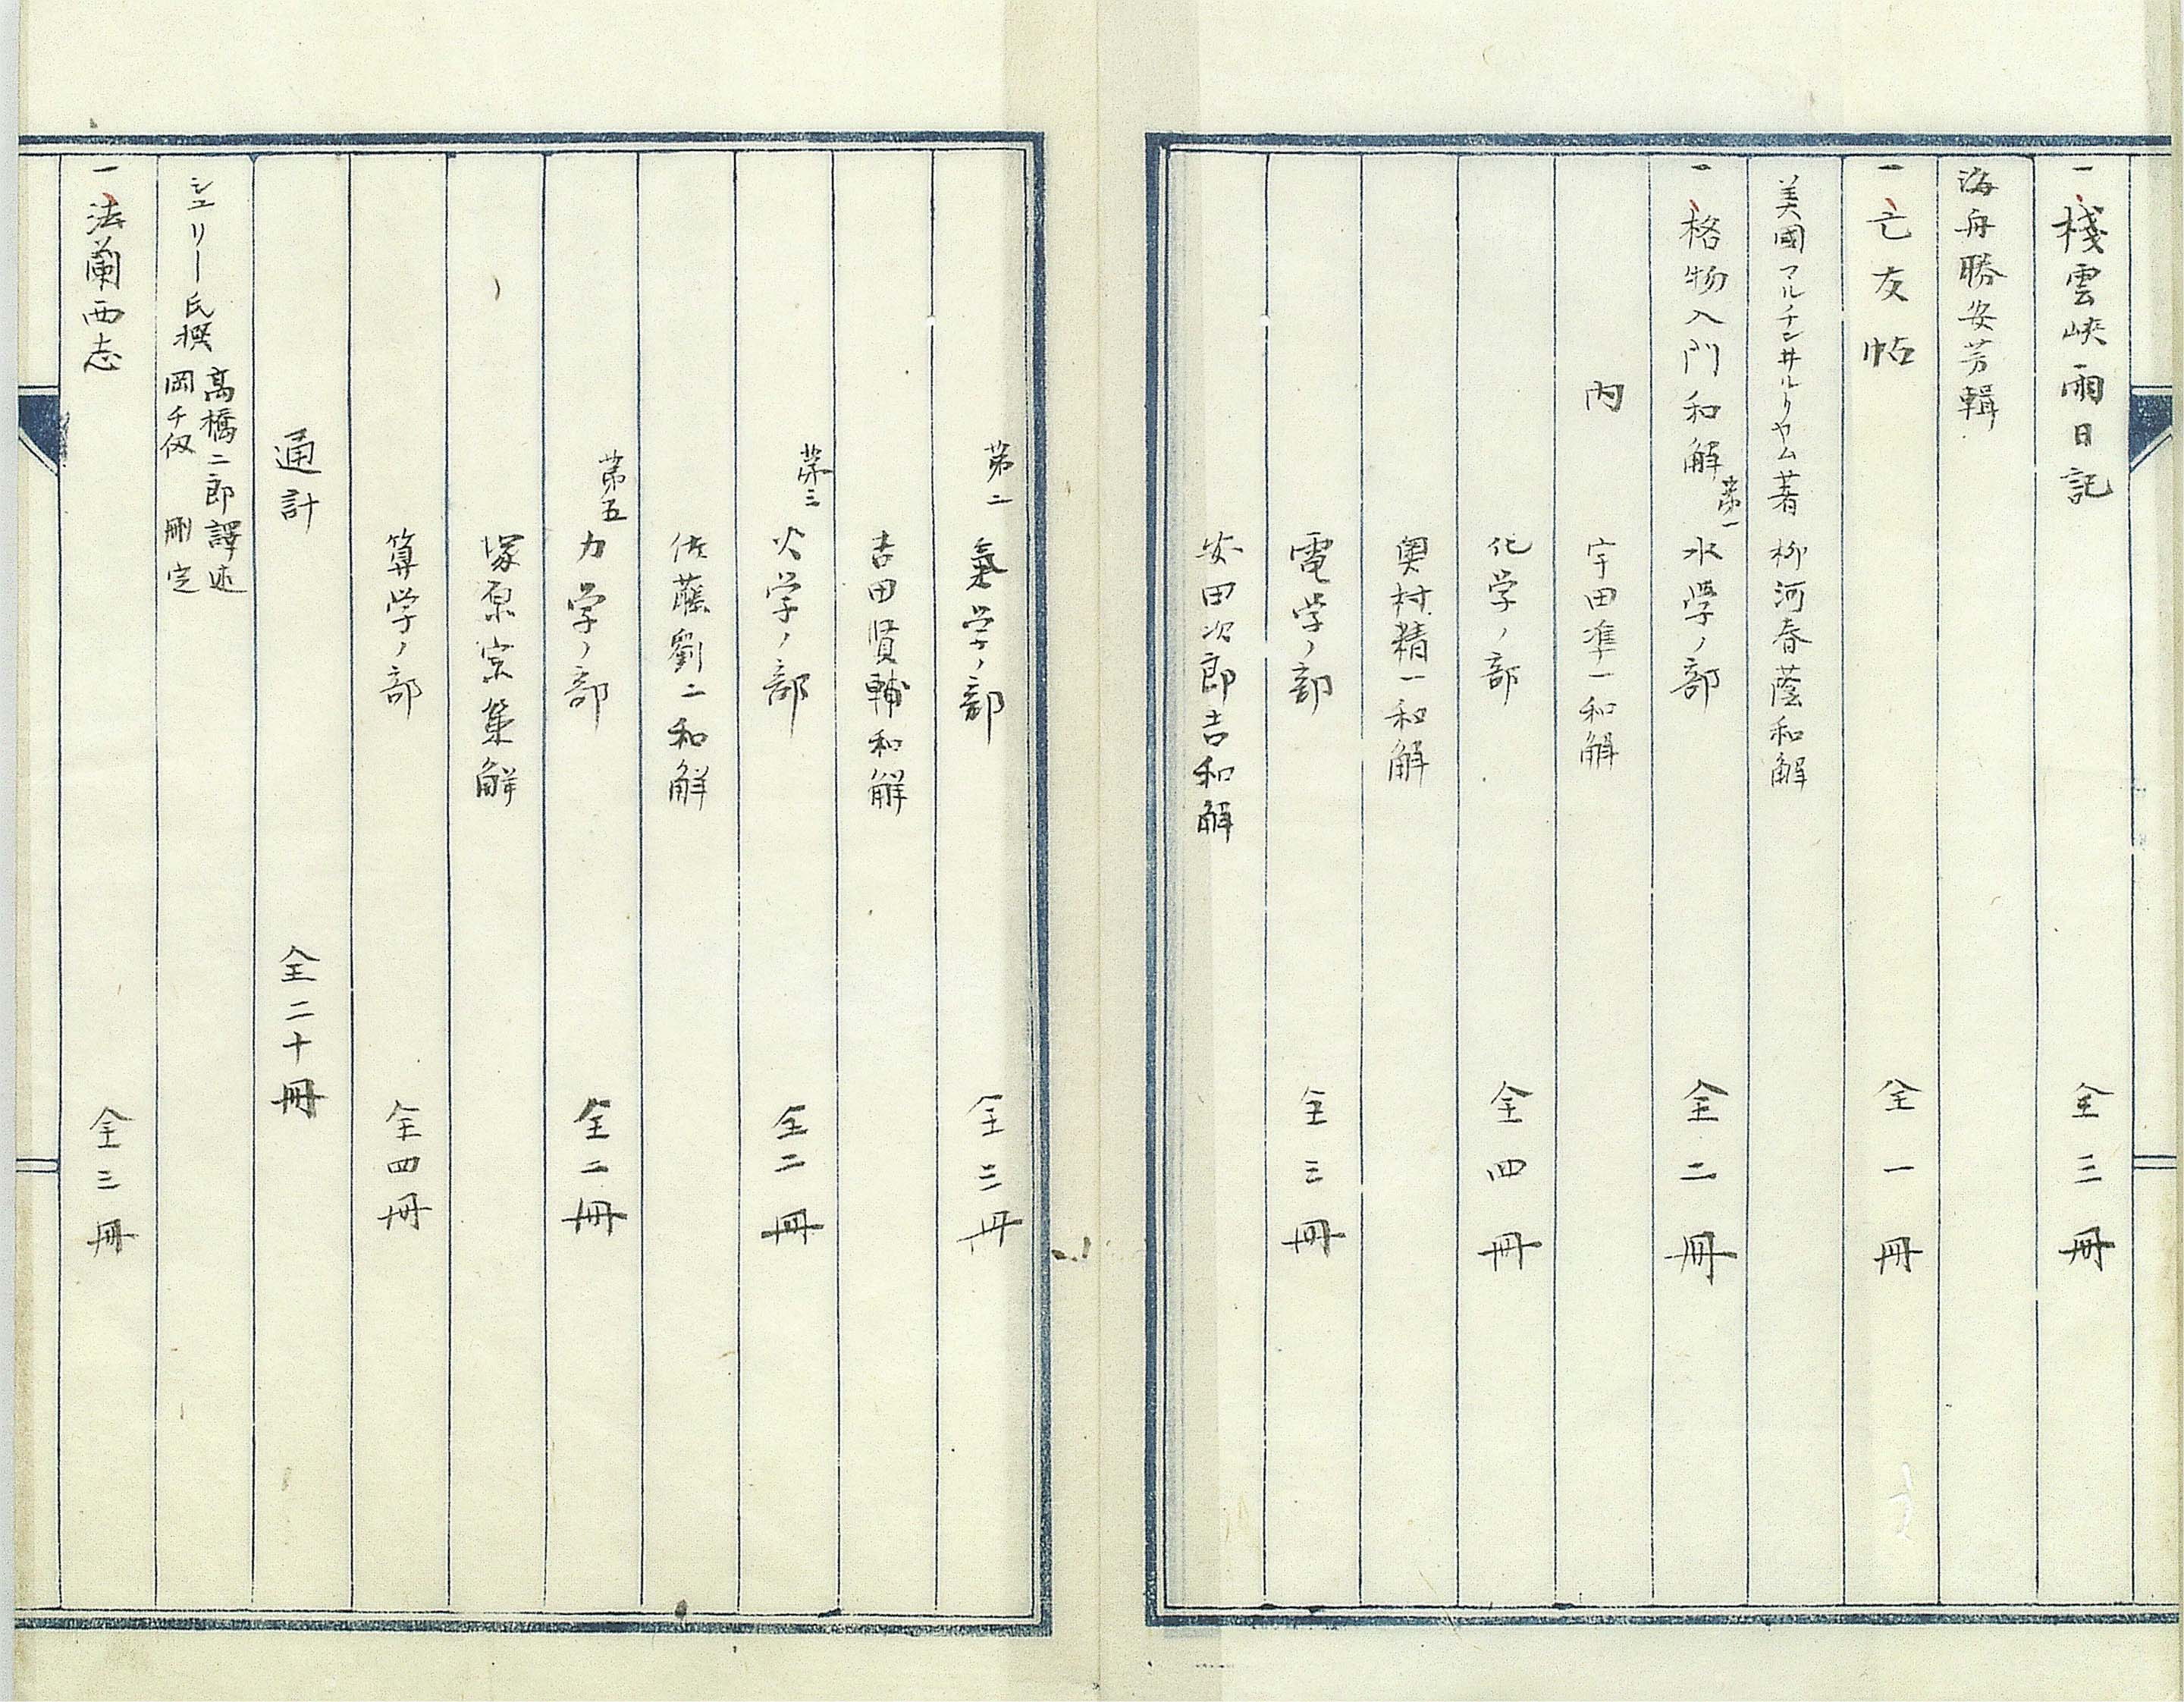 一棧雲峽雨日記　全三冊
海舟勝安芳輯
一亡友帖　全一冊
美國マルチン井ルリヤム著　柳河春蔭和解
一格物入門和解　第一　水學ノ部　全二冊
内　宇田準一和解
化学ノ部　全四冊
奥村精一和解
電学ノ部　全三冊
安田次郎吉和解
第二　氣学ノ部　全三冊
吉田賢輔和解
第三　火学ノ部　全二冊
佐藤劉二和解
第五　力学ノ部　全二冊
塚原宗策解
算学ノ部　全四冊
通計　全二十冊
シユリー氏撰　高橋二郎譯述
岡千仭　刪定
一法蘭西志　全三冊